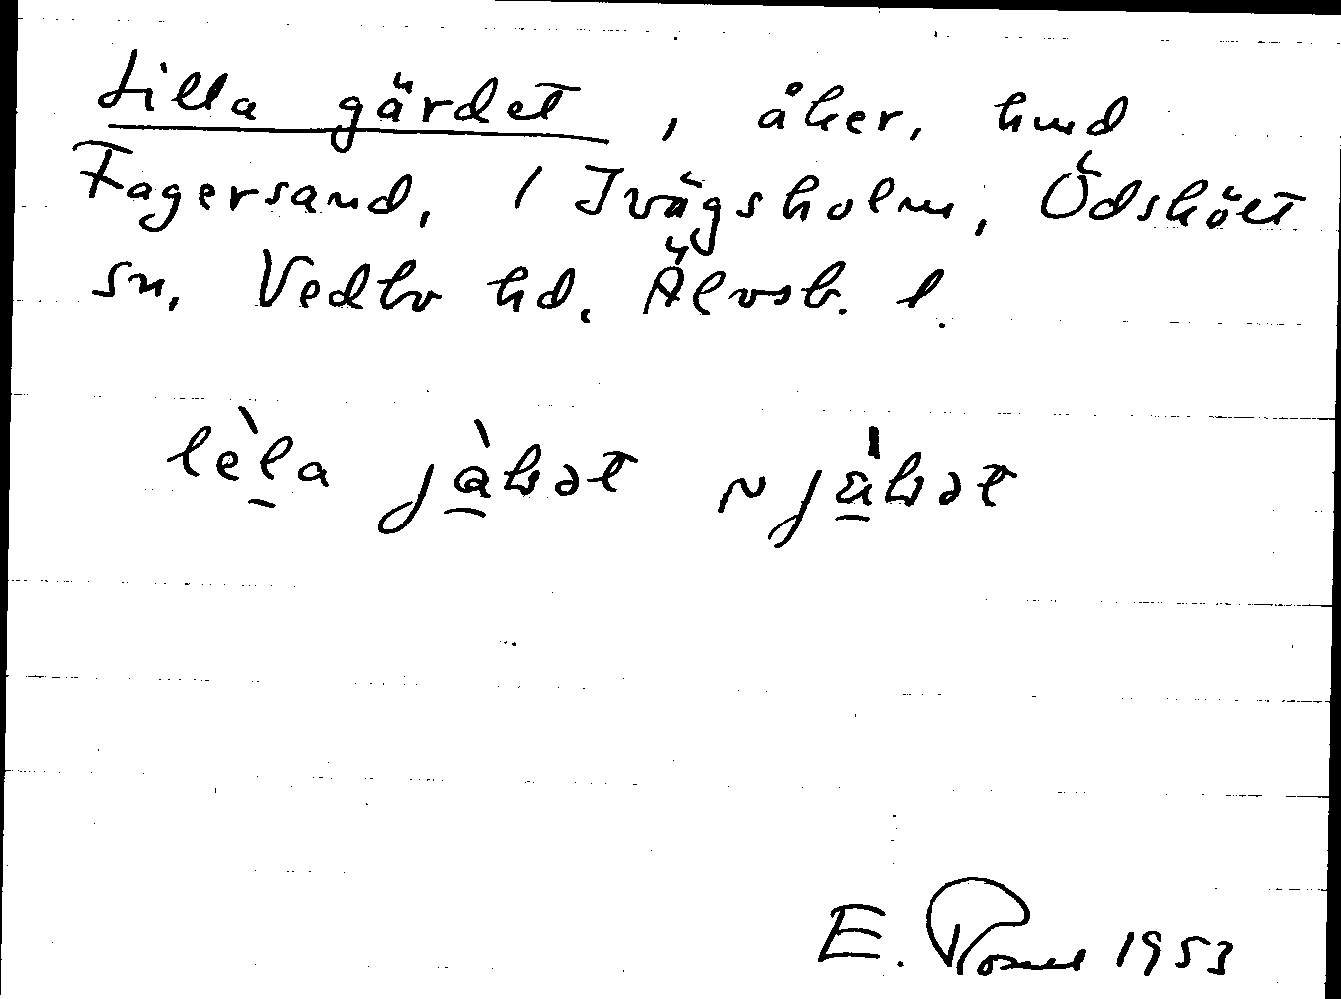 Lilla gärdet, åker, hmd
Fagersand, 1 Ivägsholm, Ödsköllt
sn, Vedbo hd. Älvsb. l.
lèla jàbət ~ jäbət
E. 1953